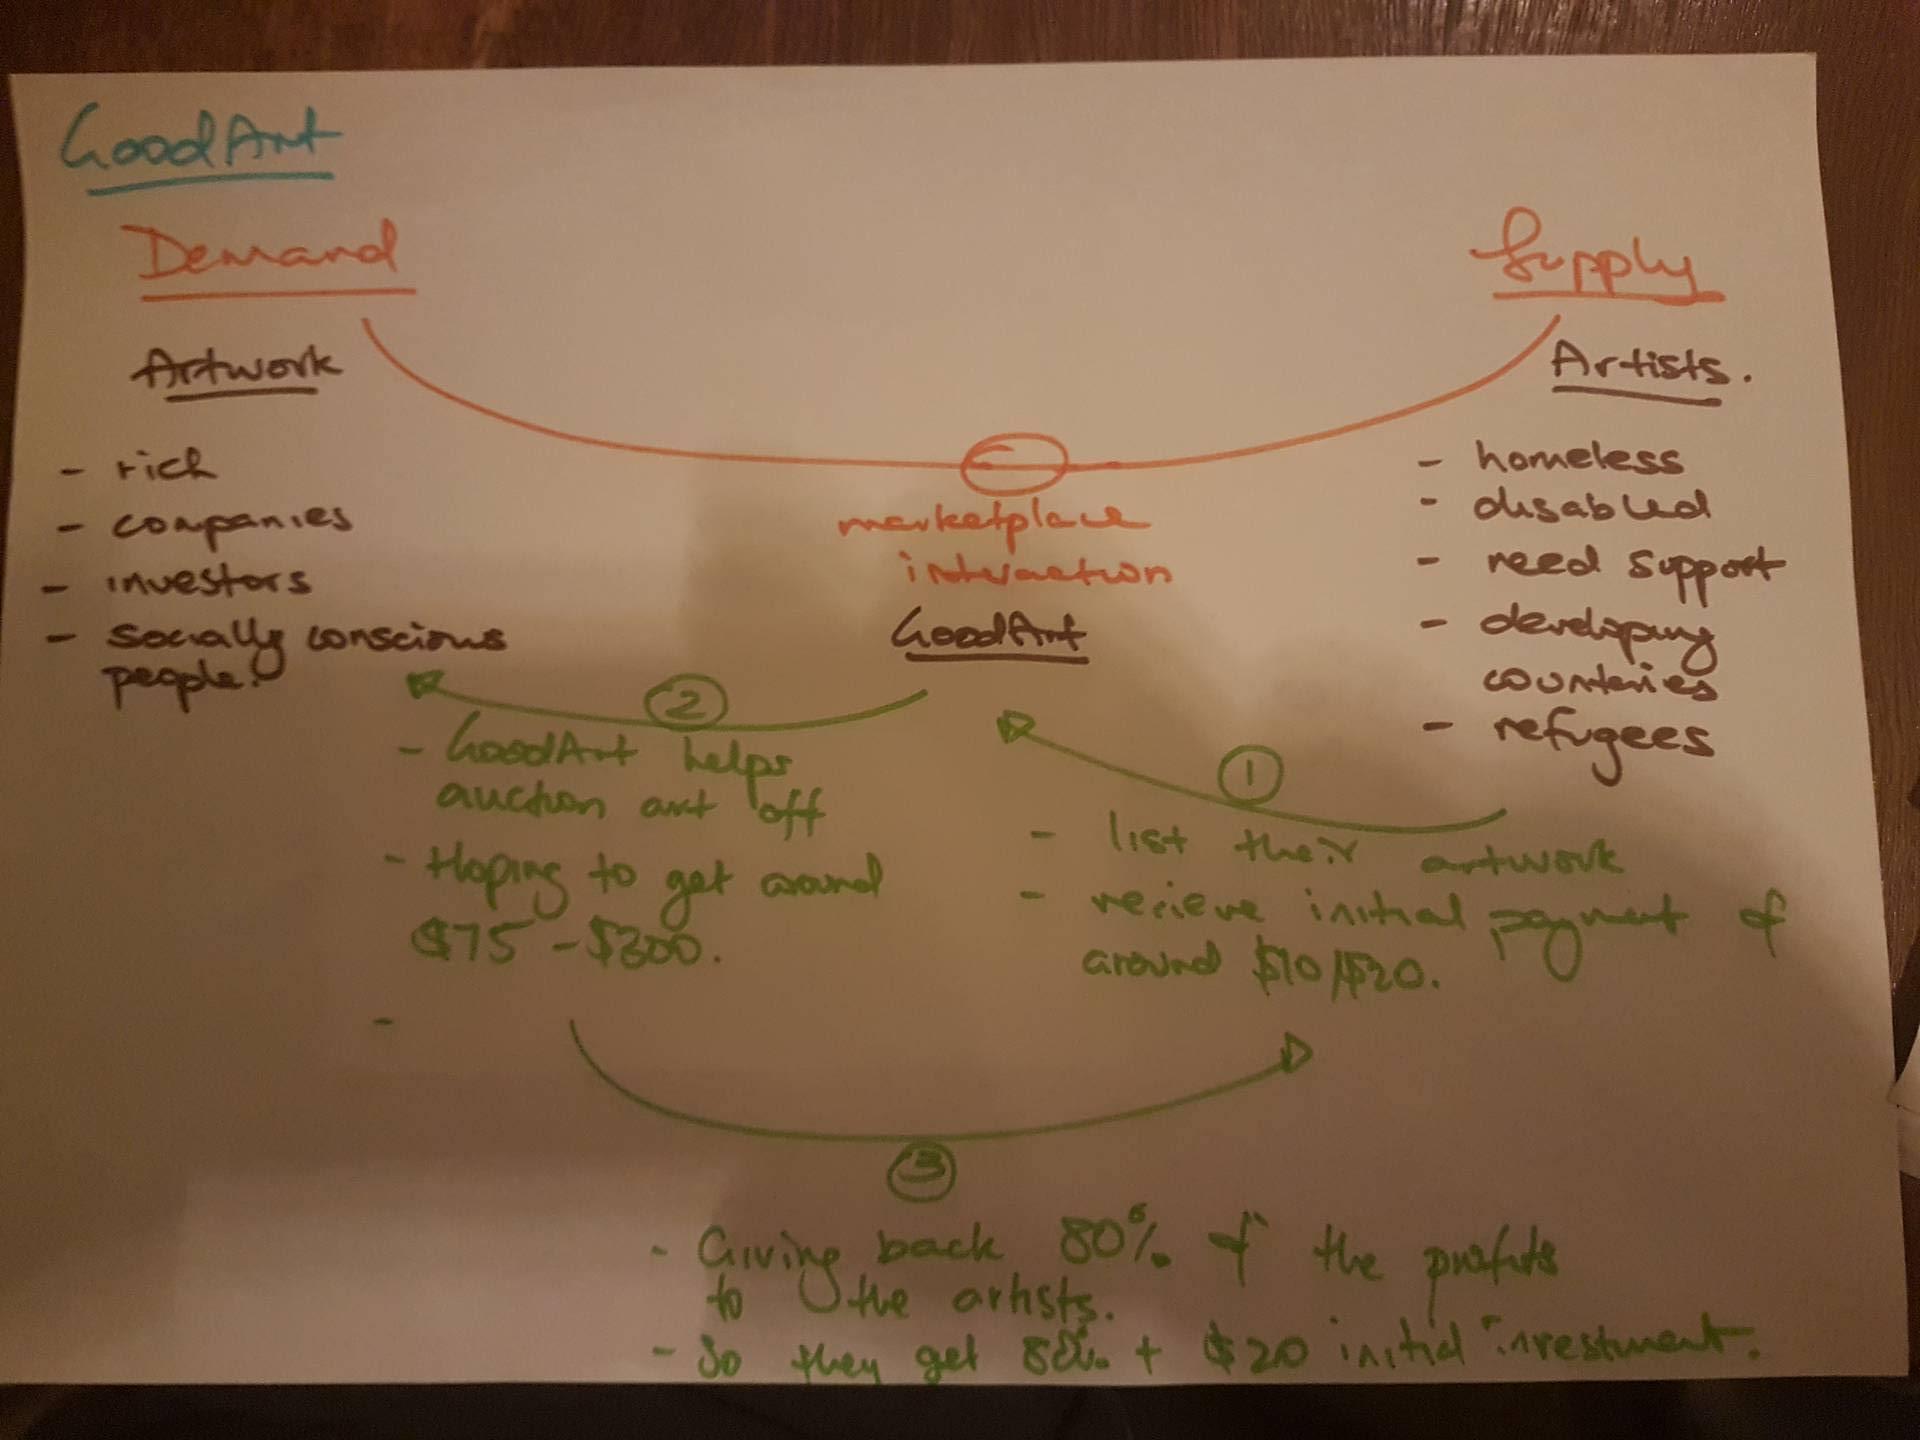 GoodArt
Demand
Artwork
- rich
- companies
- investors
- socially conscious
people.
Supply
Artists.
- homeless
- disabled
- need support
- developing
countries
- refugees
marketplace
interaction
GoodArt
1
- list their artwork
- recieve initial payment of
around $10/$20.
2
- GoodArt helps
auction art off
- Hoping to get around
$75 - $300.
-
3
- Giving back 80% of the profits
to the artists.
- So they get 80% + $20 initial investment.